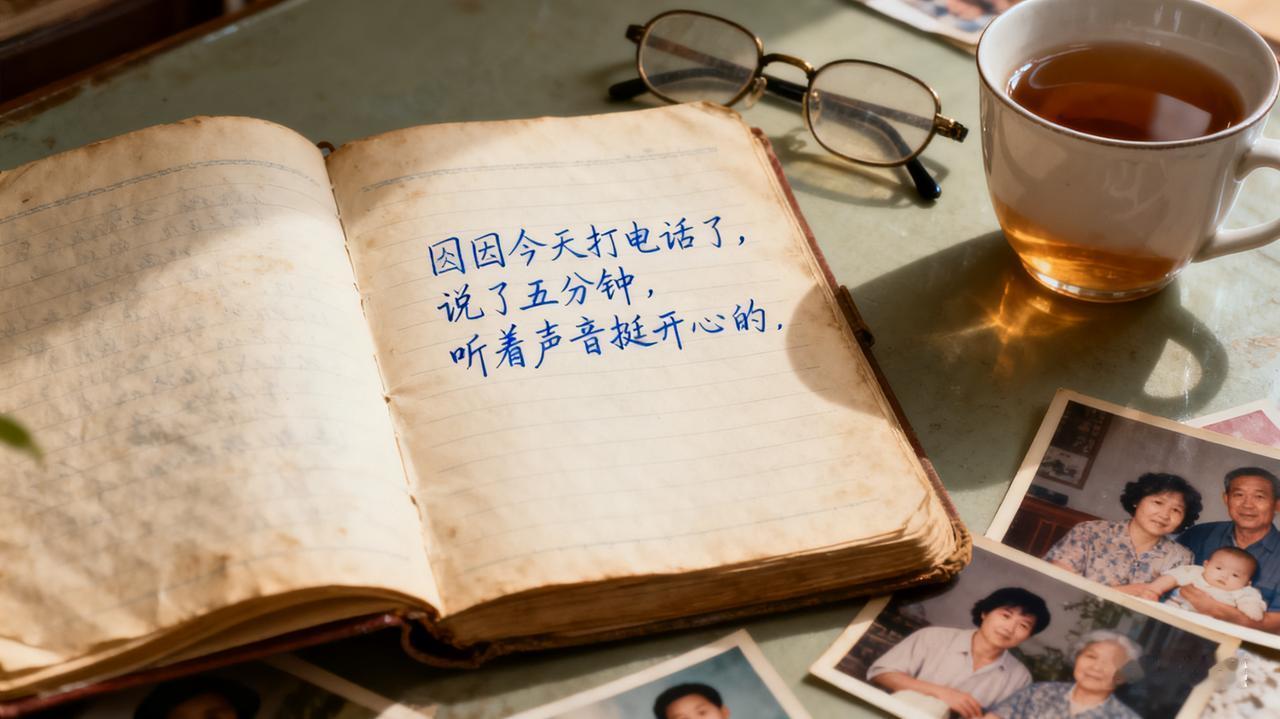 囡因今天打电话了，
说了五分钟，
听着声音挺开心的．